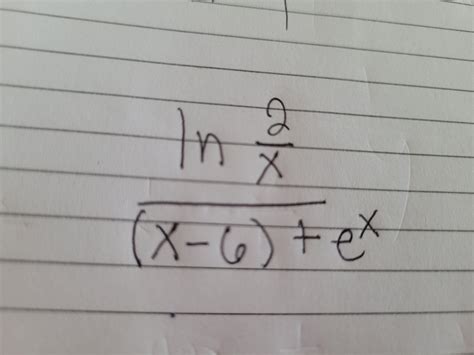 ln 2/x
(x-6) + e^x